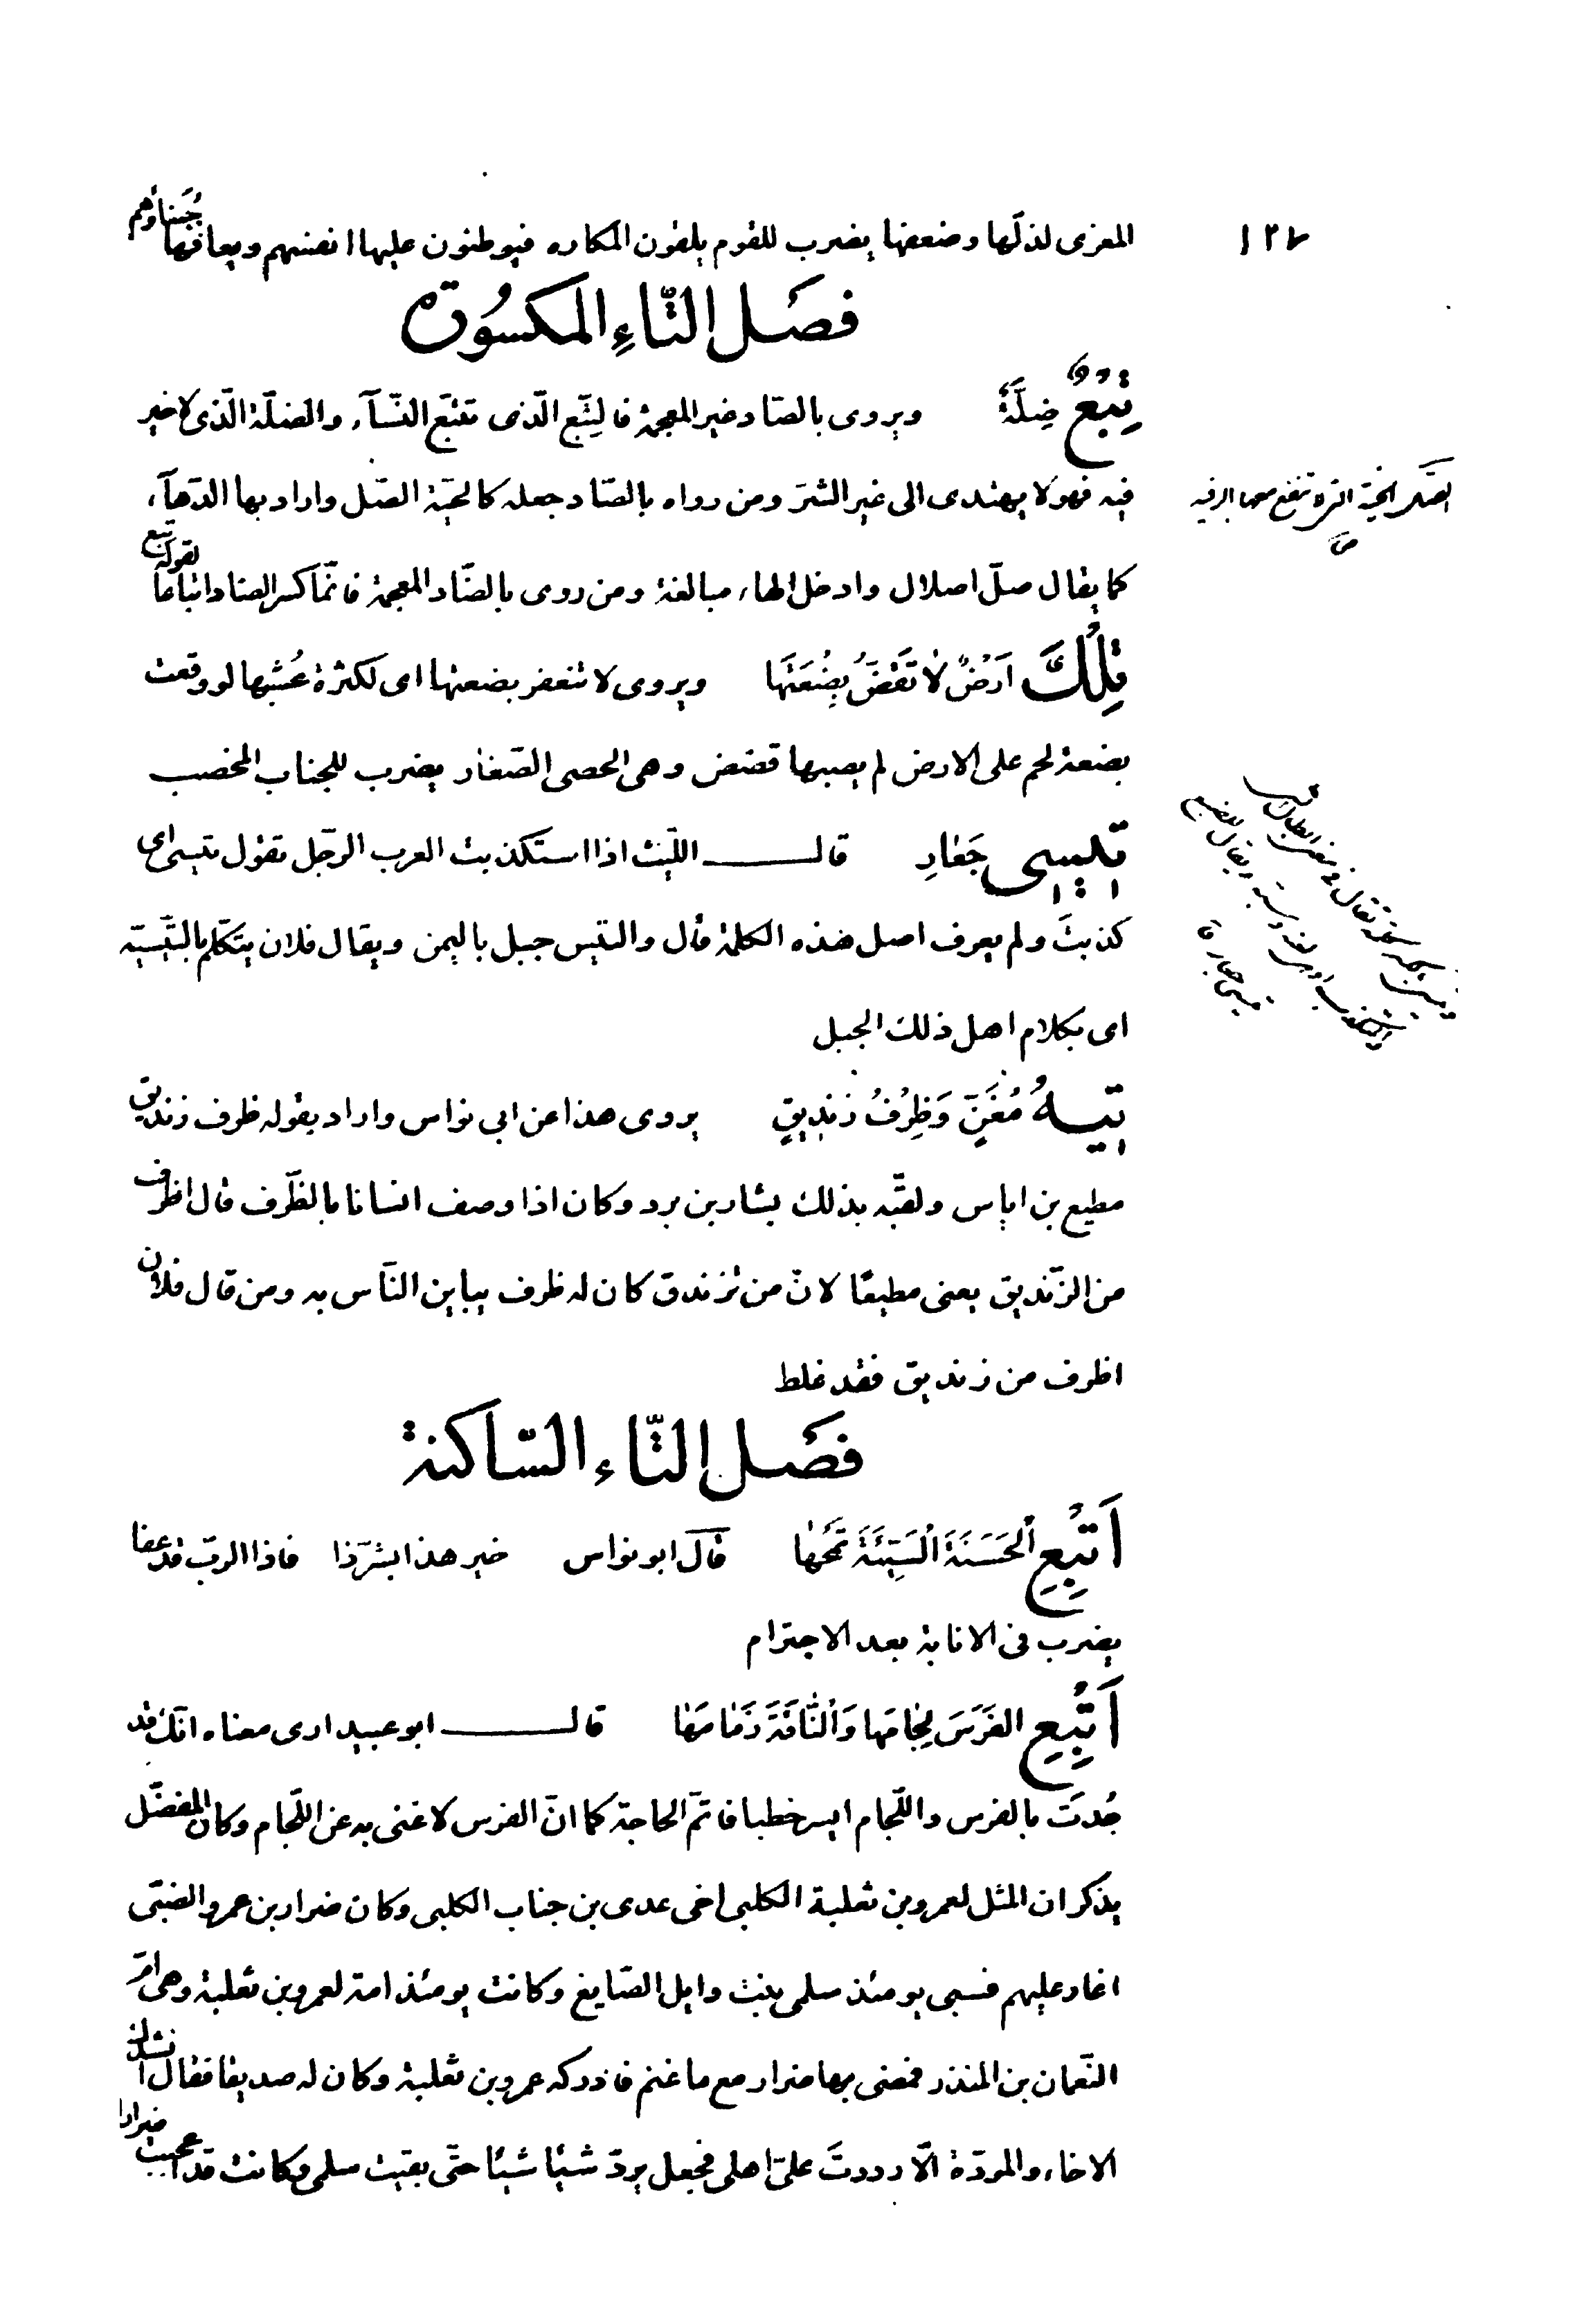 ١٢٧
المعزى لذلّها وضعفها يضرب للقوم يلقون المكاره فيوطنون عليها انفسهم ويعافها جُبَناؤهم
فصَل التّاءِ المكسُورة
تِبْعُ ضِلَّةٌ ويروى بالصّاد غير المعجمة فالتِبّع الّذى تتبّع النّسآء والضلّة الّذى لاخير
فيه فهو لا يهتدى الى غير الشرّ ومن رواه بالصّاد جعله كالحيّة الصّل واراد بها الدّهآء
كما يقال صلّ اصلال وادخل الهاء مبالغة ومن روى بالضّاد المعجمة فانّما كسر الضاد اتباعا لقوله تبع
تِلْكَ اَرْضٌ لا تَقَضُّ بِضْعَتُهَا ويروى لا تنعفر بضعتها اى لكثرة عُشبها لو وقعت
بضعة لحم على الارض لم يصبها قضض وهى الحصى الصّغار يضرب للجناب المخصب
تيسِى جَعَارِ قال اللّيث اذا استكذبت العرب الرّجل تقول تيسى اى
كذبتَ ولم يعرف اصل هذه الكلمة قال والتيس جبل باليمن ويقال فلان يتكلّم بالتّيسيّه
اى بكلام اهل ذلك الجبل
تيهُ مُغَنٍّ وَظَرْفُ زِنْدِيقٍ يروى هذا عن ابى نواس واراد بقوله ظرف زنديق
مطيع بن اياس ولقّبه بذلك بشار بن برد وكان اذا وصف انسانا بالظّرف قال اظرف
من الزّنديق يعنى مطيعًا لانّ من تزندق كان له ظرف يباين النّاس به ومن قال فلان
اظرف من زنديق فقد غلط
فصَل التّاء السّاكنة
اَتْبِعِ اْلحَسَنَةَ اْلسَيِّئَةَ تَمْحُهَا قال ابو نواس خير هذا بشرّ ذا فاذا الربّ قد عفا
يضرب فى الانابة بعد الاجترام
اَتْبِعِ الفَرَسَ لِجَامَهَا وَاْلنَّاقَةَ زَمَامَهَا قال ابو عبيد ارى معناه انّك قد
جُدتَ بالفرس واللّجام ايسر خطبا فاتمّ الحاجة كما انّ الفرس لاغنى به عن اللّجام وكان المفضّل
يذكر ان المثل لعمرو بن ثعلبة الكلبى اخى عدى بن جناب الكلبى وكان ضرار بن عمرو الضبّى
اغار عليهم فسبى يومئذ سلمى بنت وايل الصّايغ وكانت يومئذ امة لعمرو بن ثعلبة وهى امّ
النّعمان بن المنذر فمضى بها ضرار مع ما غنم فادركه عمرو بن ثعلبة وكان له صديقا فقال انشدك
الاخاء والمودّة الّا رددتَ علىّ اهلى فجعل يردّ شيئا شيئا حتّى بقيت سلمى وكانت قد اعجبت ضرارا
الصّل الحية التى لا تنفع معها الرقية